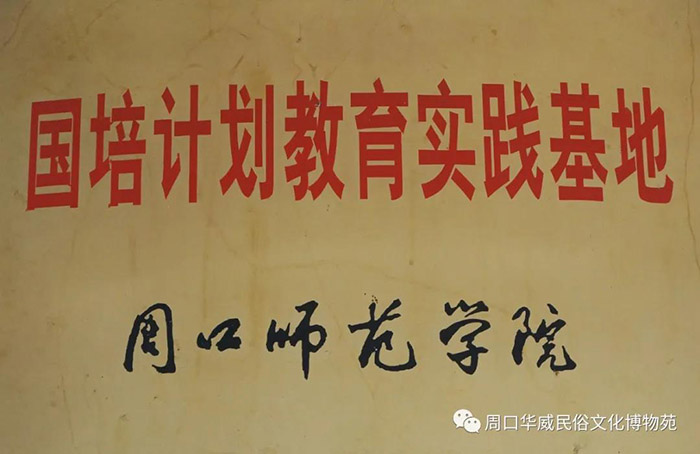 国培计划教育实践基地
周口师范学院
周口华威民俗文化博物苑